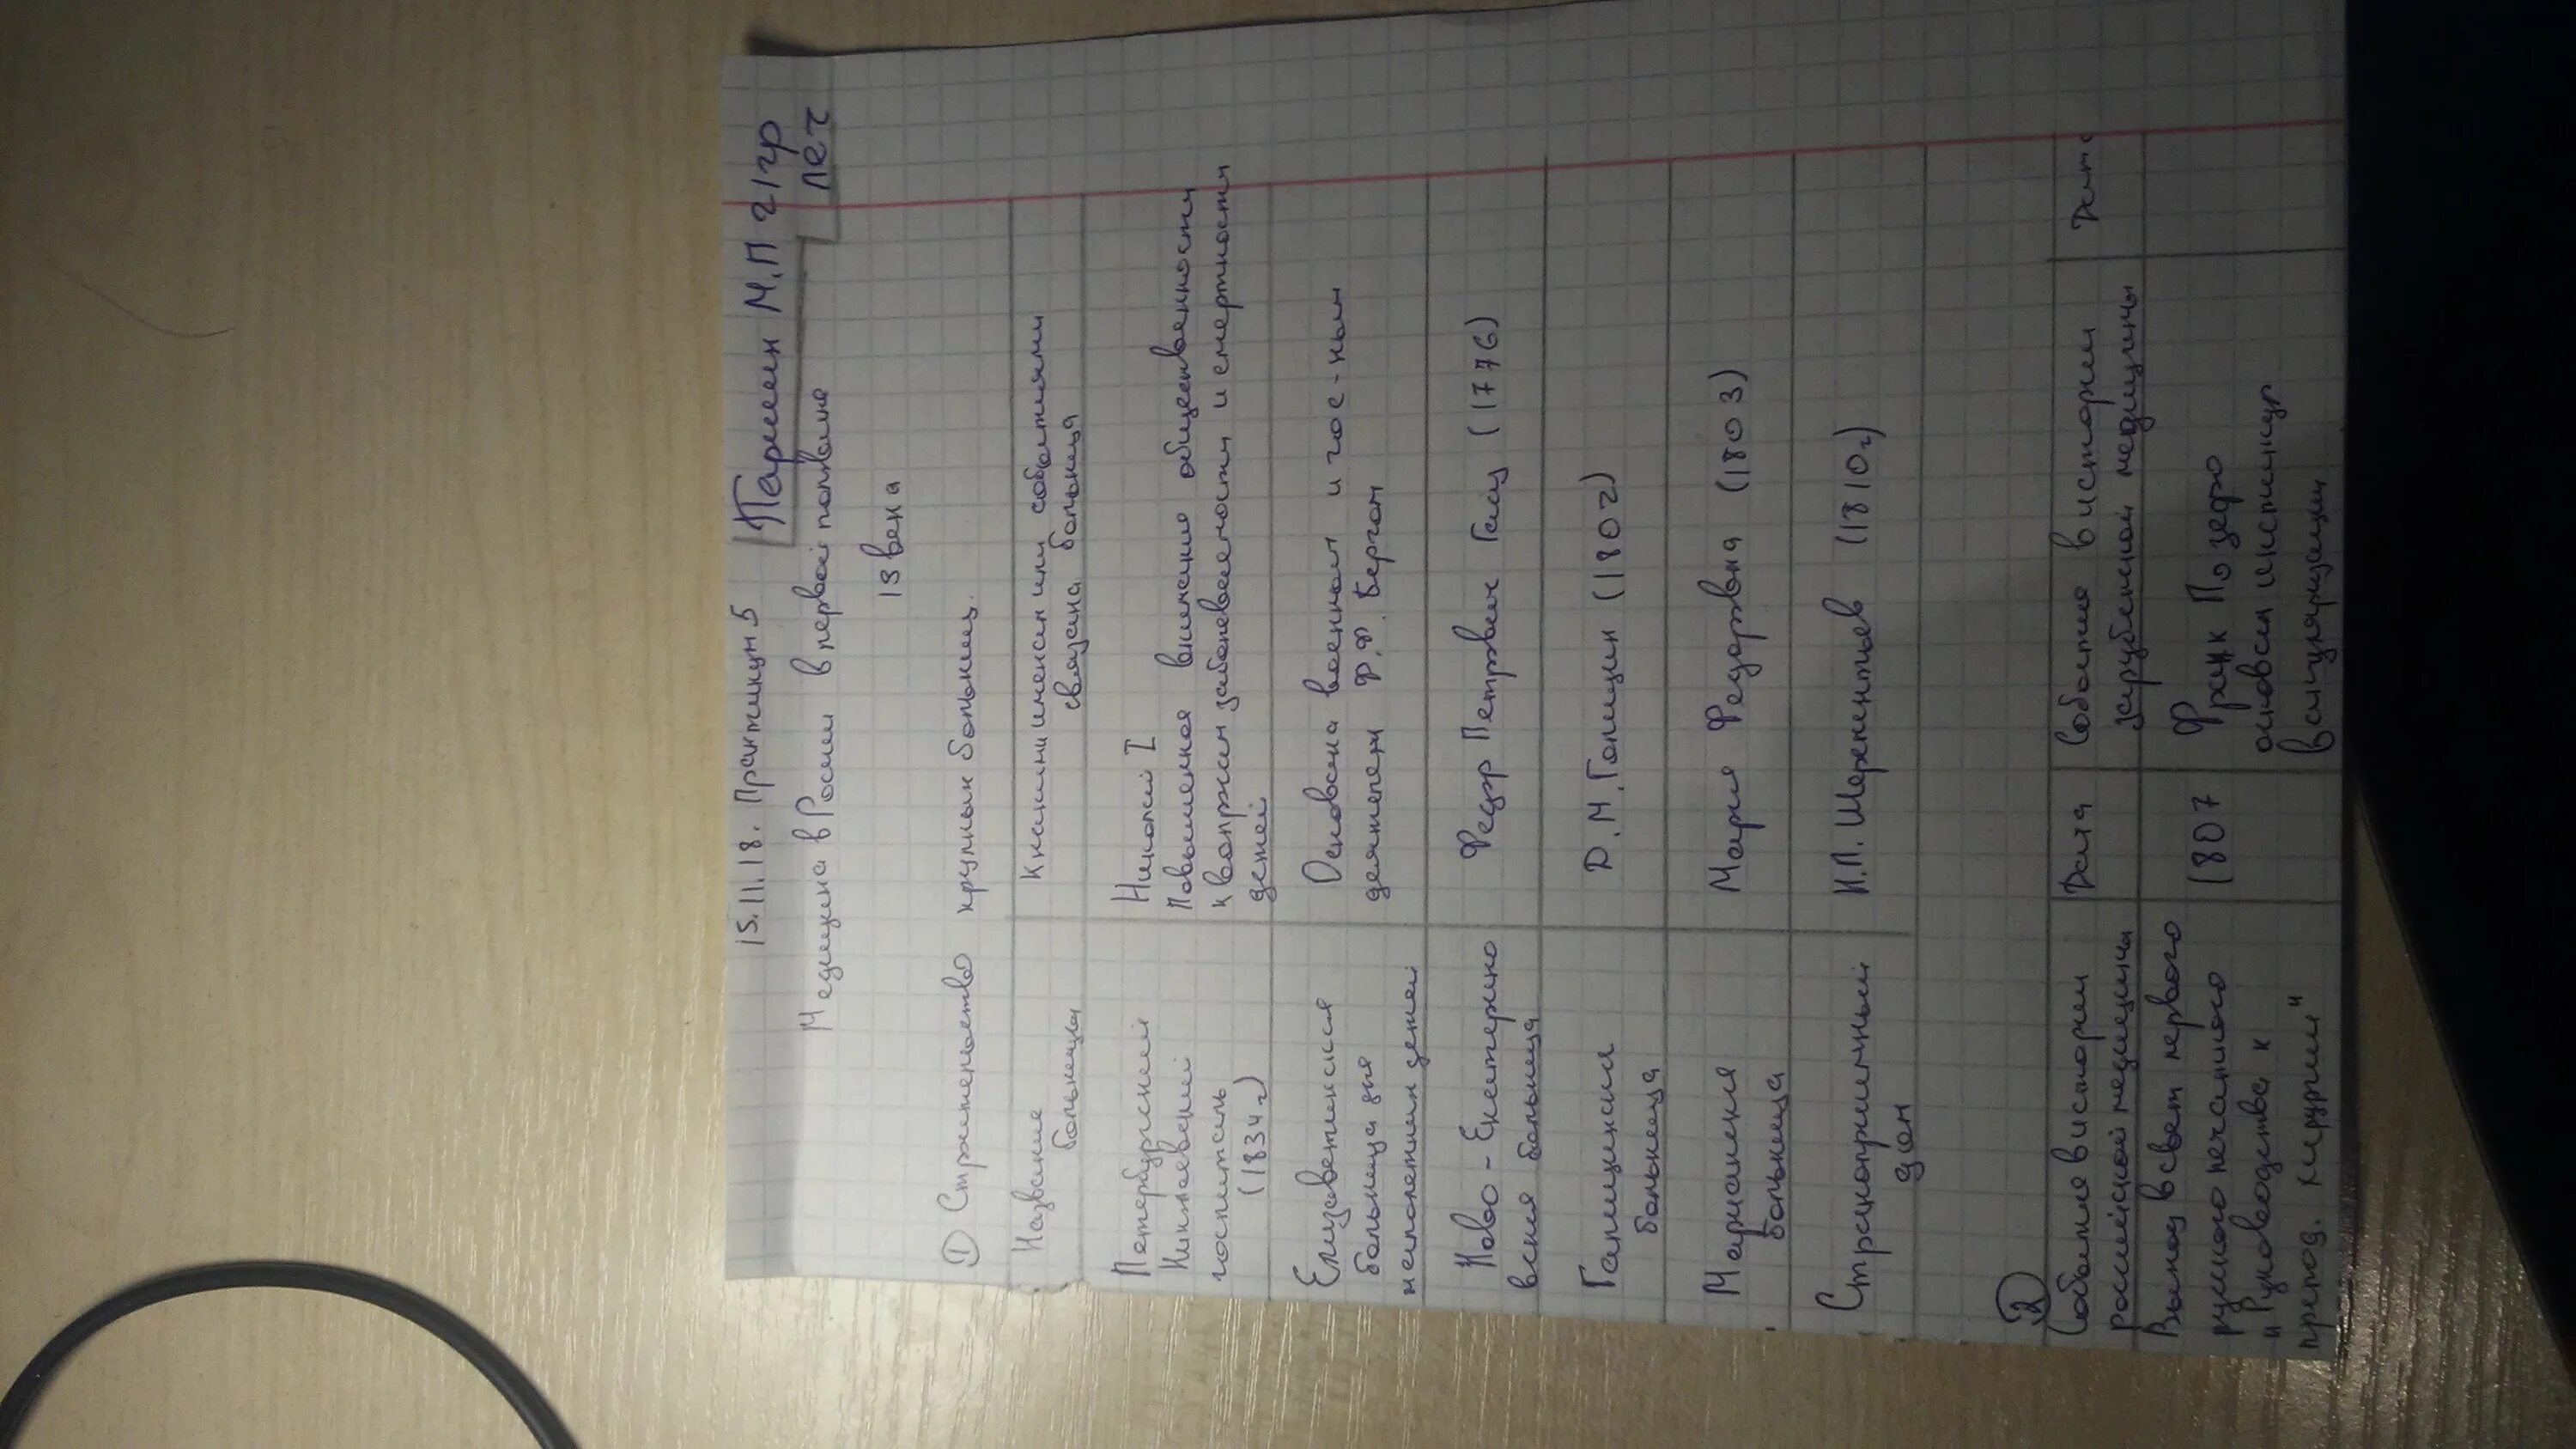 15.11.18. Практикум 5
Паршин М.П 21гр
леч
Медицина в России в первой половине
19 века
① Строительство крупных больниц.
Название
больницы
С какими именами или событиями
связана больница
Петербургский
Николаевский
госпиталь
(1834г)
Николай I
Повышенное внимание общественности
к вопросам заболеваемости и смертности
детей
Елизаветинская
больница для
малолетних детей
Основана военным и гос-ным
деятелем Ф.Ф. Бергом
Ново-Екатерино
вская больница
Федор Петрович Гааз (1776)
Галицинская
больница
Д.М. Голицин (1802)
Мариинская
больница
Мария Федоровна (1803)
Странноприимный
дом
Н.П. Шереметьев (1810г)
②
Событие в истории
российской медицины
Дата
Событие в истории
зарубежной медицины
Дата
Выход в свет первого
русского печатного
"Руководства к
препод. хирургии"
1807
Франк
основал